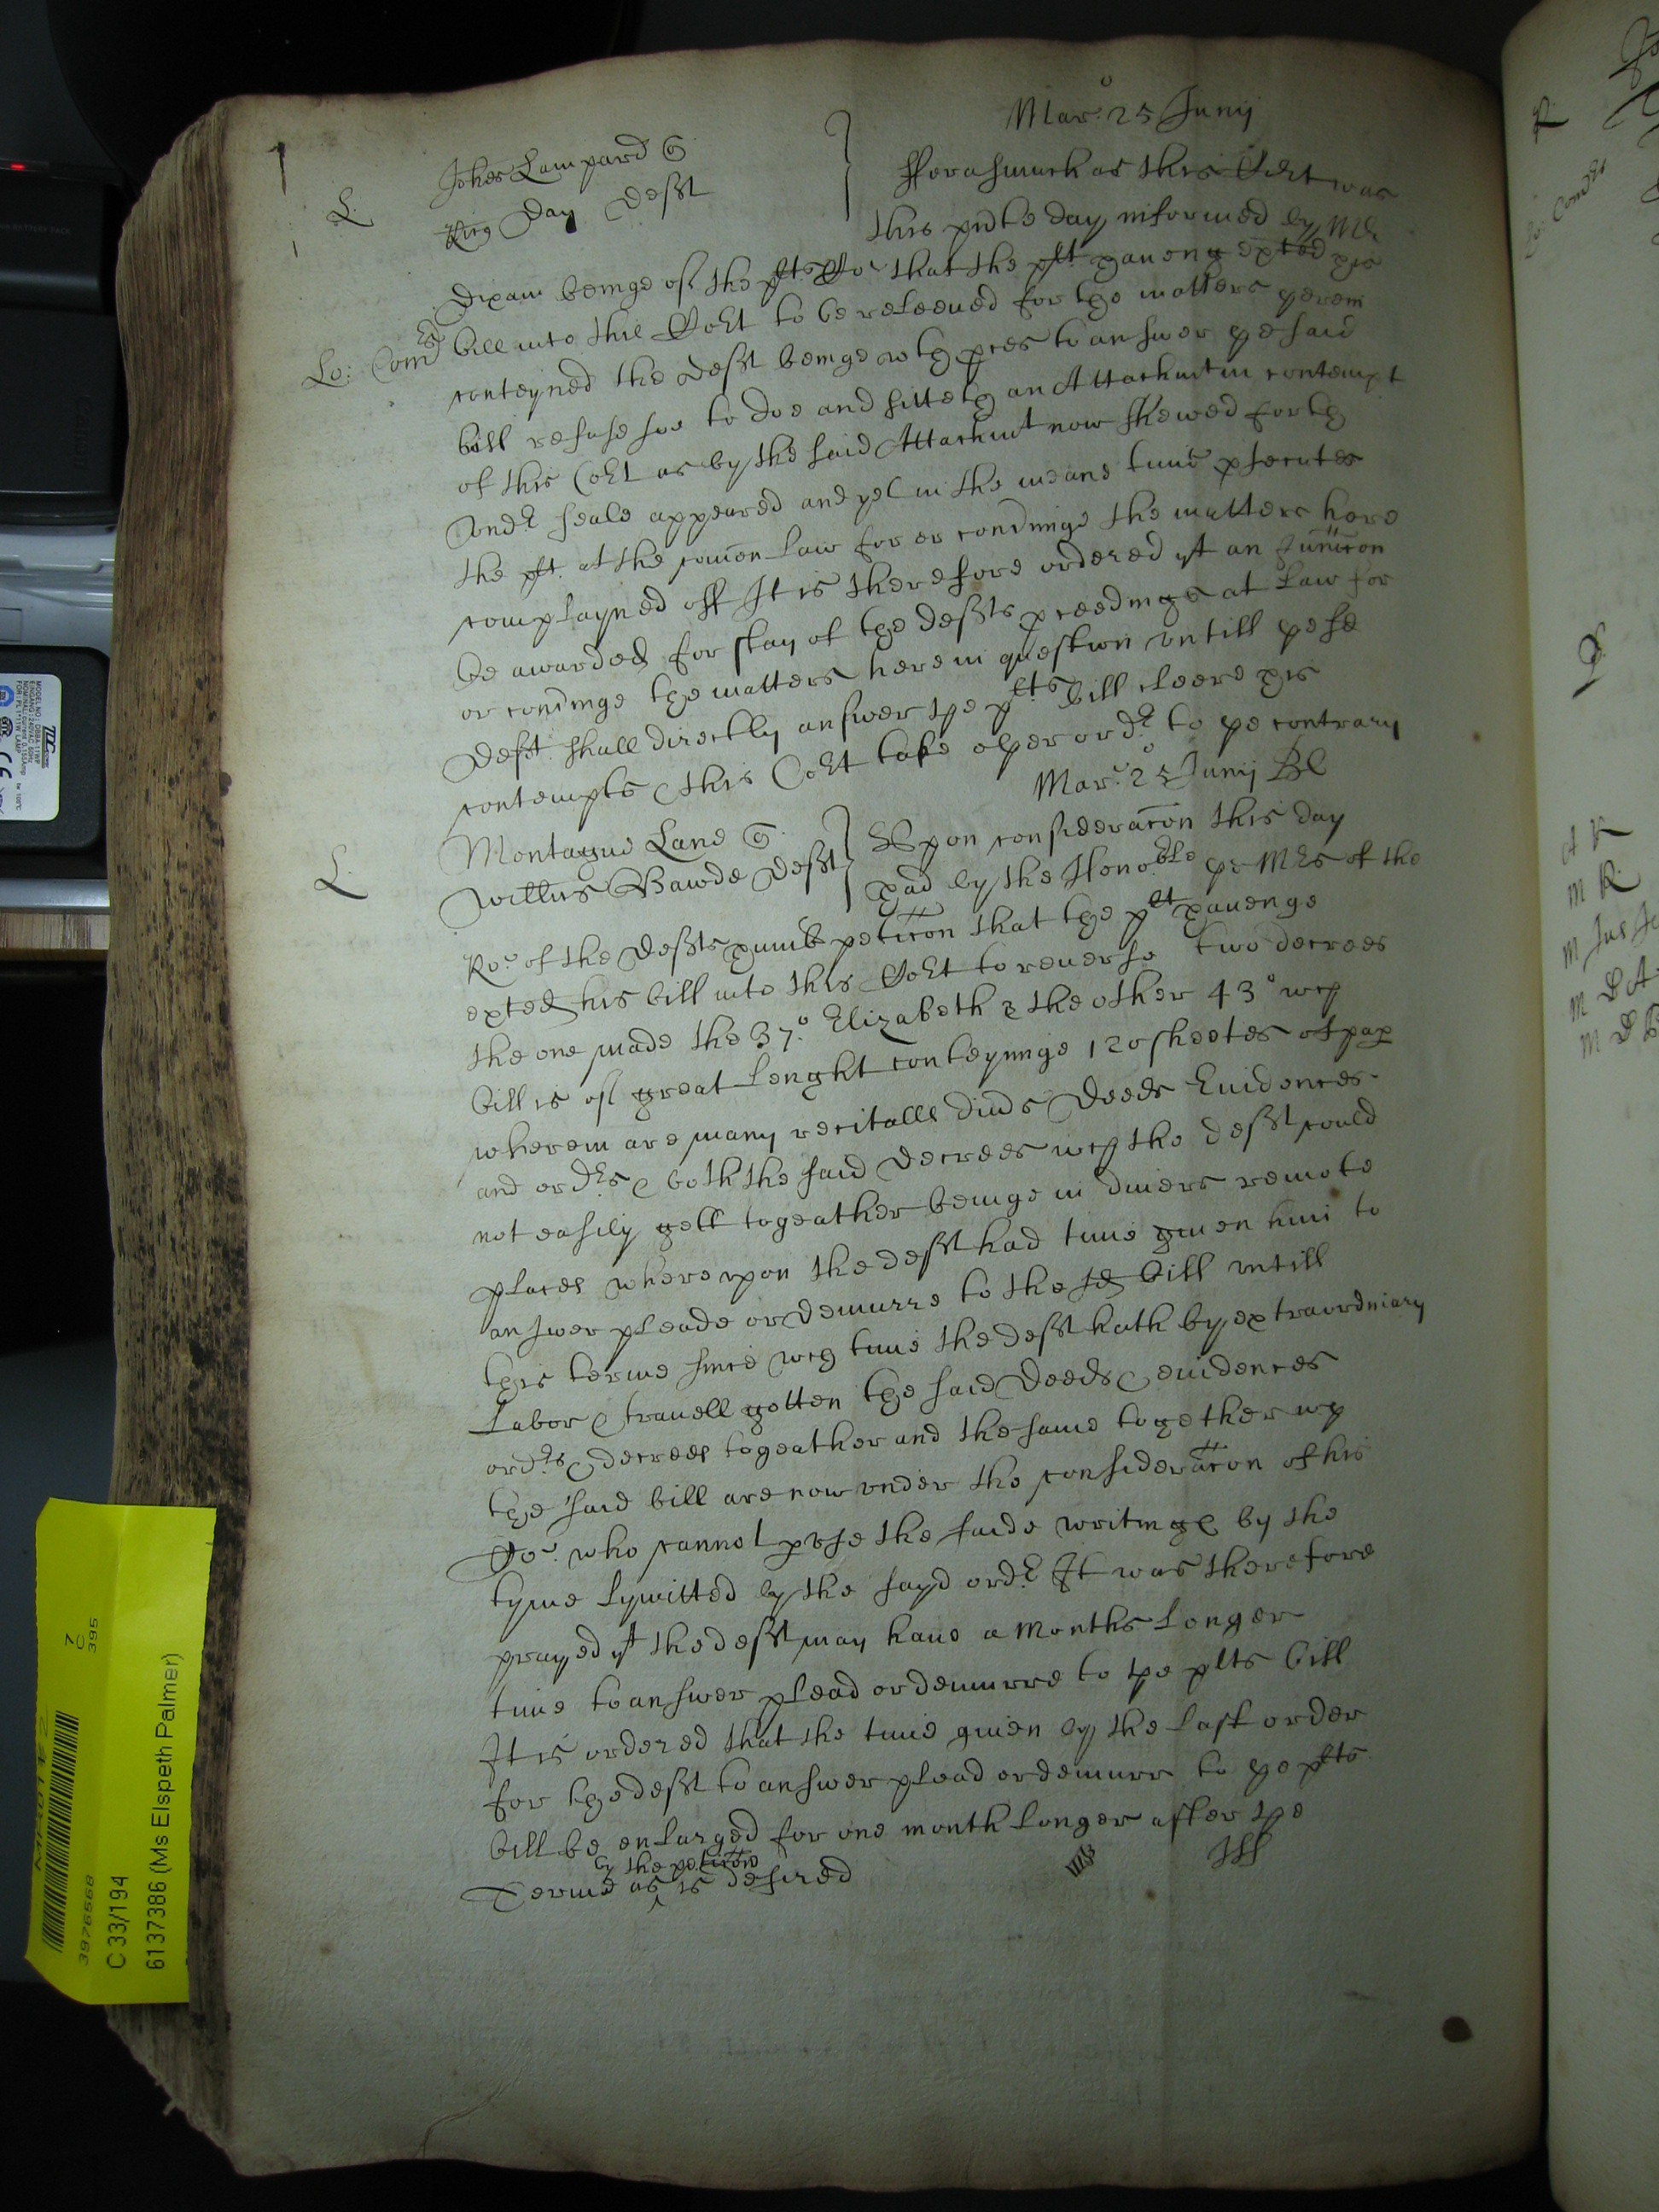 Mar: 25 Junij
L
Johes Lampard
Ric Day Defst
fforasmuch as this Cort was
this pnte day informed by Mr
Dixam beinge of the plts Cor that the plt haveng exted his
Lo: Comr bill into this Cort to be releeved for the matters herein
conteyned the Defst beinge wth pces to answer ye said
bill refuse soe to doe and sitteth an Attachmt in contempt
of this Cort as by the said Attachmt now shewed forth
undr seale appeared and yet in the meane time psecutes
the plt at the comon law for or concrninge the matters here
complayned off It is therefore ordered yt an Iunccon
be awarded for stay of the defsts pceedings at law for
or concrninge the matters here in question untill ye sd
Defst shall directly answer the plts bill cleere his
contempts & this Cort take other ordr to ye contrary
Mar: 25 Junij
L
Montague Lane
Willus Bawde Defst
Upon consideracon this day
had by the Honoble ye Mr of the
Ro: of the Defsts humb peticon that the plt havenge
exted his bill into this Cort to reverse two decrees
the one made the 37o Elizabeth & the other 43o wch
bill is of great lenght conteyninge 120 sheetes of pap
wherein are many recitalls divs Deeds Evidences
and ordrs & both the said Decrees wch the defst could
not easily gett togeather beinge in divers remote
places whereupon the defst had time given him to
answer pleade or demurre to the sd bill untill
this terme since wch time the defst hath by extraordniary
labor & travell gotten the said Deeds & evidences
ordrs & decrees togeather and the same together wth
the said bill are now under the consideracon of his
Cor. who cannot pvse the saide writings by the
tyme lymitted by the sayd ordr It was therefore
prayed yt the defst may have a Months longer
time to answer plead or demurre to the plts bill
It is ordered that the time given by the last order
for the defst to answer plead or demurr to ye plts
bill be enlarged for one month longer after the
by the peticon
Terme as is desired
MODEL NO: DBBA-11WP
C 33/194
6137386 (Ms Elspeth Palmer)
3976568
7
C
395